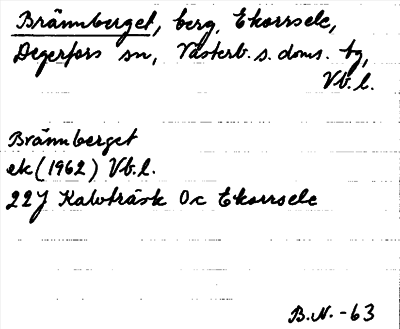 Brännberget, berg, Ekorrsele,
Degerfors sn, Västerb. s. doms. bg,
Vb. l.
Brännberget
ek (1962) Vb. l.
22J Kalvträsk 0c Ekorrsele
B.N. -63